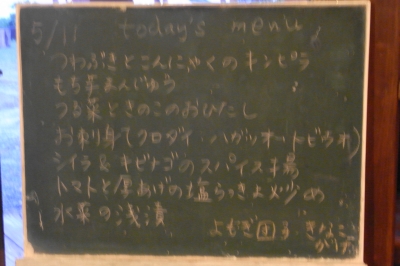 5/11 today's menu
つわぶきとこんにゃくのキンピラ
もち芋まんじゅう
つる菜ときのこのおひたし
お刺身(クロダイ・ハガツオ・トビウオ)
シイラ&キビナゴのスパイス揚
トマトと厚あげの塩らっきょ炒め
水菜の浅漬
よもぎ団子 きなこ